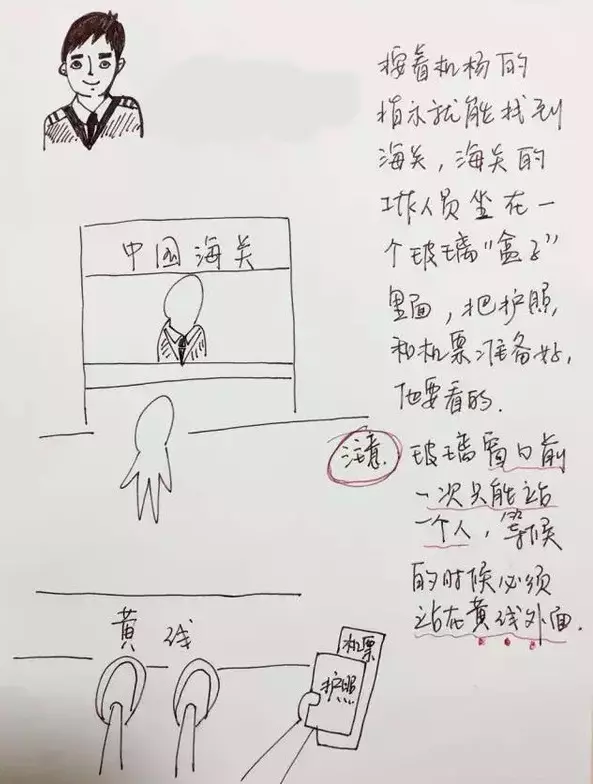 按着机杨的
指示就能找到
海关，海关的
工作人员坐在一
个玻璃“盒子”
里面，把护照，
和机票准备好，
他要看的.
注意. 玻璃窗口前
一次只能站
一个人，等候
的时候必须
站在黄线外面.
中国海关
黄线
机票
护照